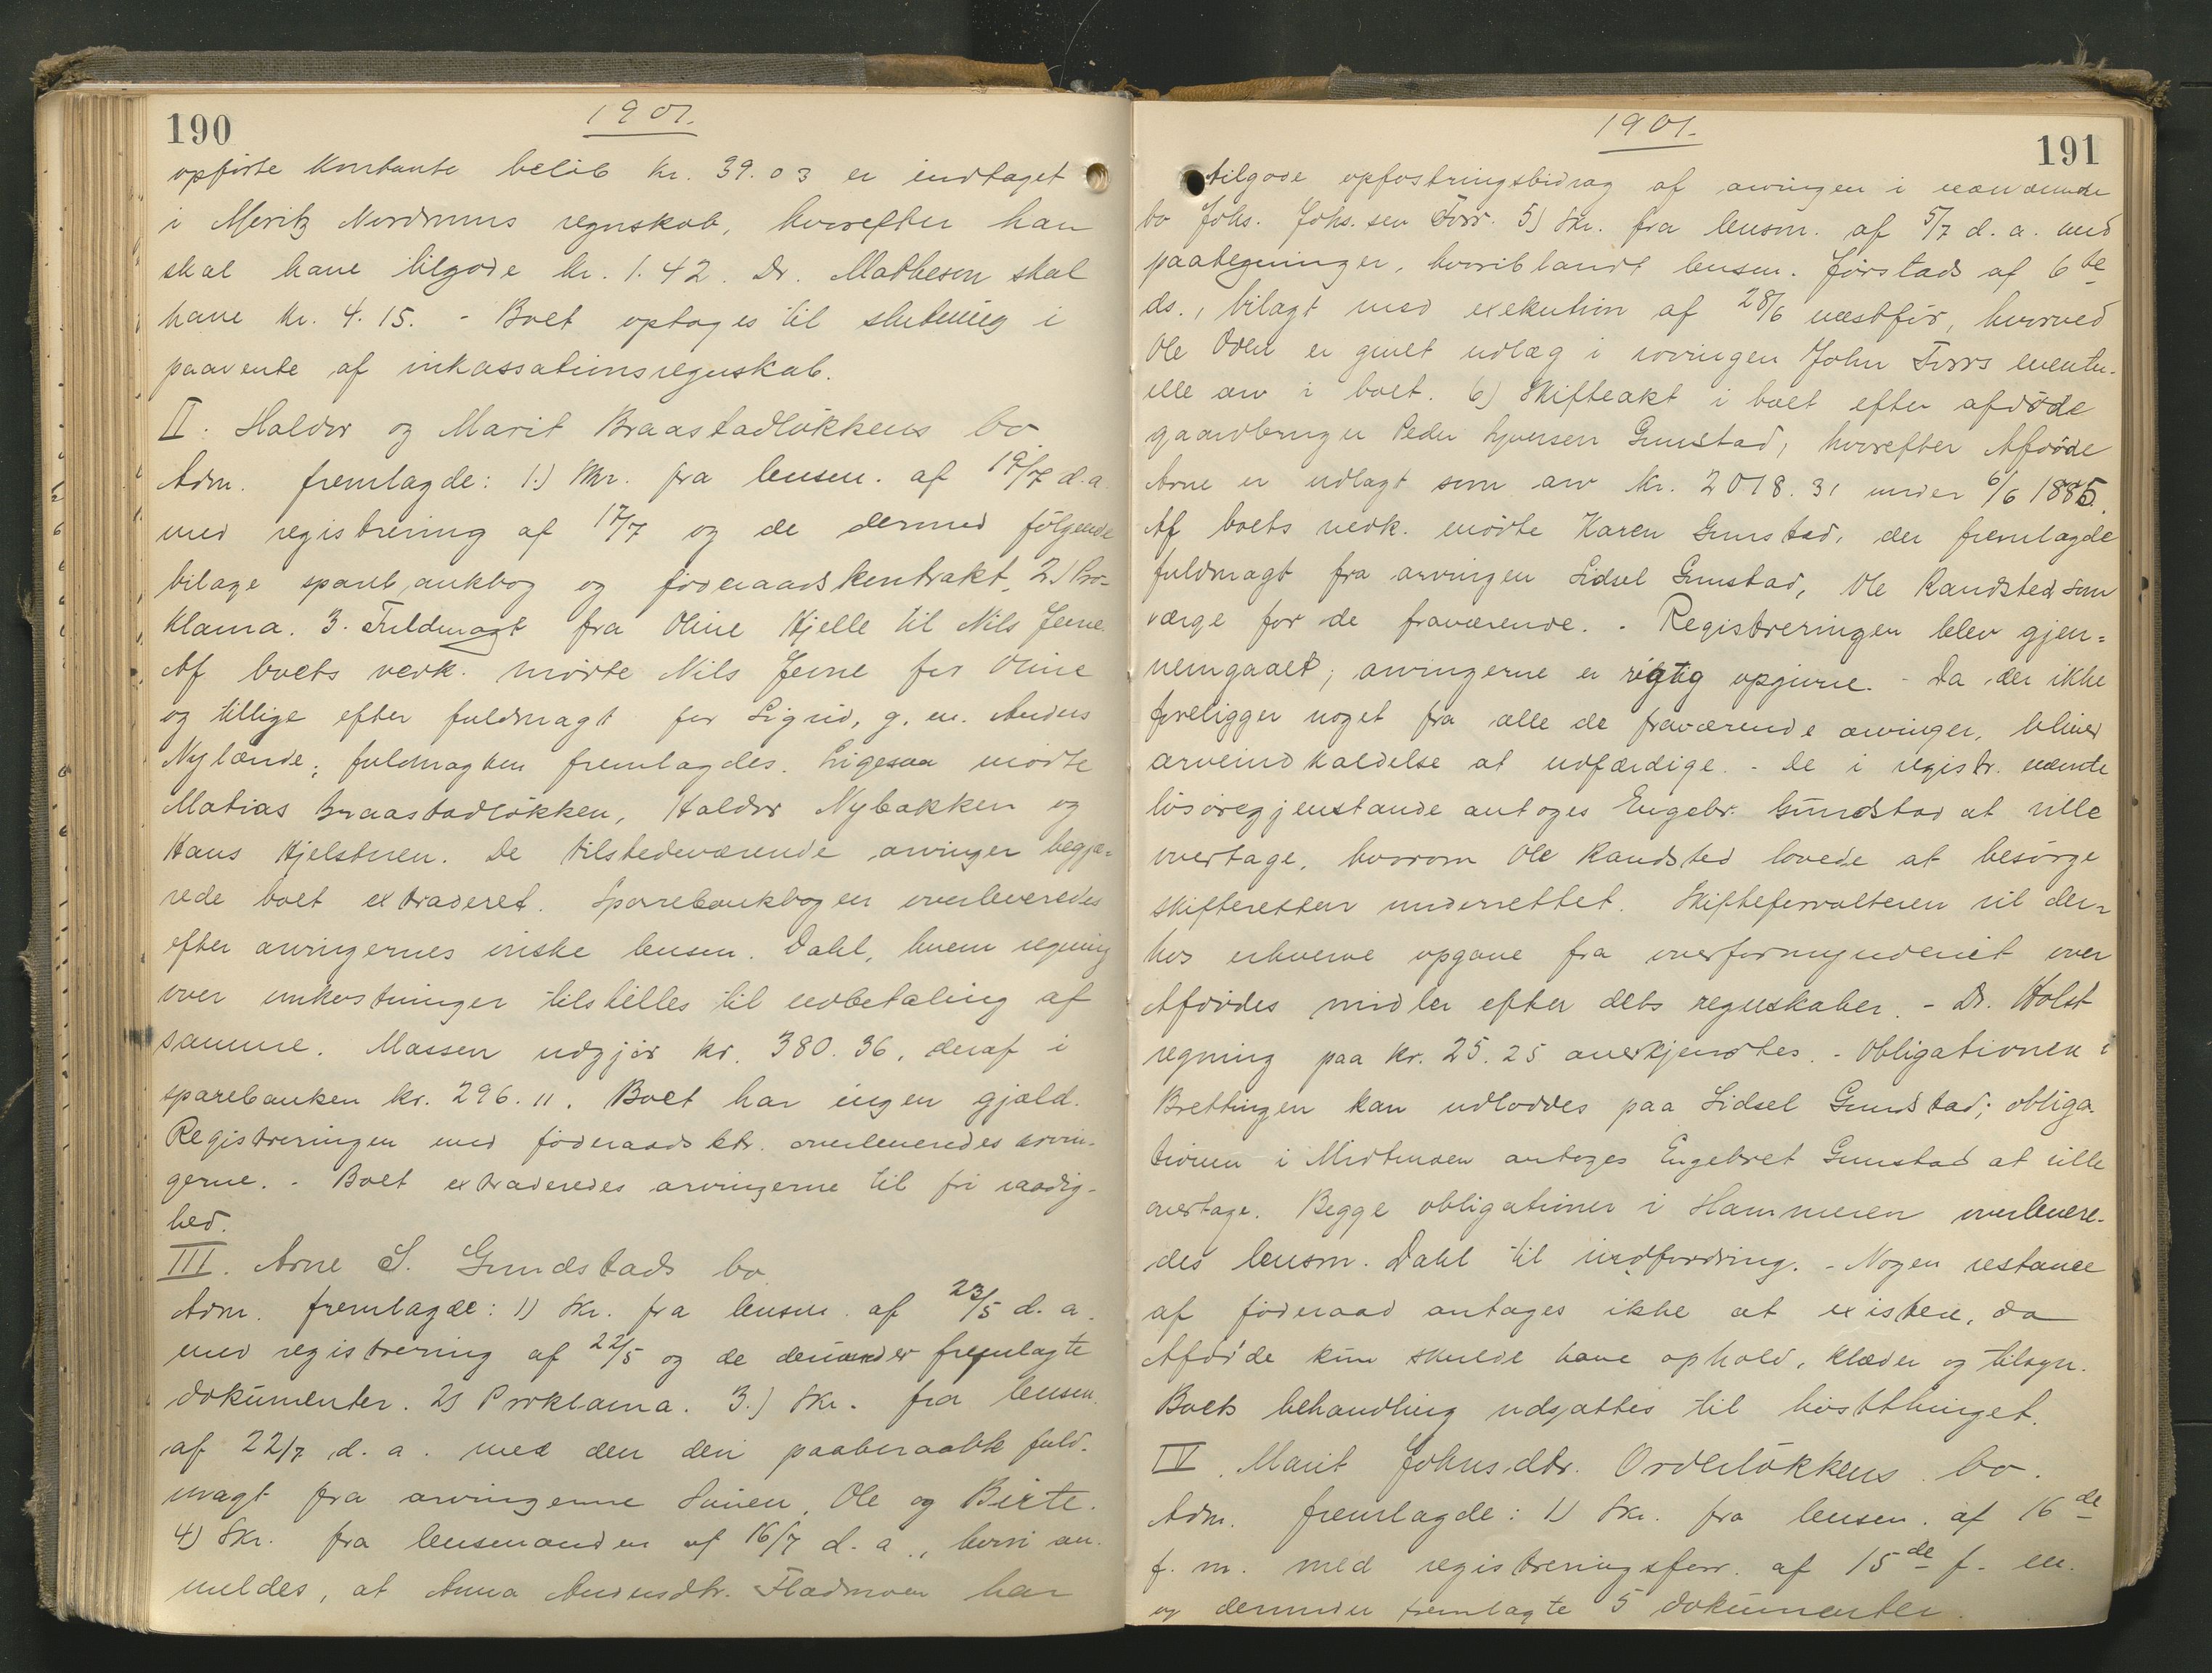 190
1901.
opførte kontante beløb kr. 39.03 er indtaget
i Meritz Nordrums regnskab, hvorefter han
skal have tilgode kr. 1.42. Dr. Matheson skal
have kr. 4.15. - Boet optoges til slutning i
paavente af inkassationsregnskab.
II. Haldor og Marit Braastadløkkens bo.
Adm. fremlagde: 1.) Skr. fra lensm. af 19/7 d.a.
med registrering af 17/7 og de dermed følgende
bilage sparebankbog og føderaadskontrakt, 2.) Pro-
klama. 3. Fuldmagt fra Oline Kjelle til Nils Jerne.
Af boets vedk. mødte Nils Jerne for Oline
og tillige efter fuldmagt for Sigrid, g. m. Anders
Nylænde; fuldmagten fremlagdes. Ligesaa mødte
Matias Braastadløkken, Haldor Nybakken og
Hans Kjelstuen. De tilstedeværende arvinger begjæ-
rede boet extraderet. Sparebankbogen overleveredes
efter arvingernes ønske lensm. Dahl, hvem regning
over omkostninger tilstilles til udbetaling af
samme. Massen udgjør kr. 380.36, deraf i
sparebanken kr. 296.11. Boet har ingen gjæld.
Registreringen med føderaadsktr. overleveredes arvin-
gerne. - Boet extraderedes arvingerne til fri raadig-
hed.
III. Arne S. Gundstads bo.
Adm. fremlagde: 1) Skr. fra lensm. af 23/5 d. a.
med registrering af 22/5 og de derunder fremlagte
dokumenter. 2) Proklama. 3.) Skr. fra lensm.
af 22/7 d. a. med den deri paaberaabte fuld-
magt fra arvingerne Simen, Ole og Birte.
4) Skr. fra lensmanden af 16/7 d. a., hvori an-
meldes, at Anna Andersdtr. Fladmoen har
191
1901.
tilgode opfostringsbidrag af arvingen i nærværende
bo Johs. Johs.sen Torr. 5) Skr. fra lensm. af 5/7 d. a. med
paategninger, hvoriblandt lensm. Jørstads af 6te
ds., bilagt med exekution af 28/6 næstfør, hvorved
Ole Oden er givet udlæg i arvingen John Torrs eventu-
elle arv i boet. 6) Skifteakt i boet efter afdøde
gaardbruger Peder Syversen Gunstad, hvorefter Afdøde
Arne er udlagt som arv kr. 2018.31 under 6/6 1885.
Af boets vedk. mødte Karen Gunstad, der fremlagde
fuldmagt fra arvingen Sidsel Gunstad, Ole Randsted som
værge for de fraværende. - Registreringen blev gjen-
nemgaaet; arvingerne er rigtig opgivne. - Da der ikke
foreligger noget fra alle de fraværende arvinger, bliver
arveindkaldelse at udfærdige. - De i registr. nævnte
løsøregjenstande antoges Engebr. Gundstad at ville
overtage, hvorom Ole Randsted lovede at besørge
skifteretten underrettet. Skifteforvalteren vil der-
hos erhverve opgave fra overformynderiet over
Afdødes midler efter dets regnskaber. - Dr. Holst
regning paa kr. 25.25 anerkjendtes. - Obligationen i
Brettingen kan udloddes paa Sidsel Gundstad; obliga-
tionen i Midtmoen antoges Engebret Gunstad at ville
overtage. Begge obligationer i Hammeren overlevere-
des lensm. Dahl til indfordring. - Nogen restance
af føderaad antages ikke at existere, da
Afdøde kun skulde have ophold, klæder og tilsyn.
Boets behandling udsattes til høstthinget.
IV. Marit Johnsdtr. Odenløkkens bo.
Adm. fremlagde: 1) Skr. fra lensm. af 16de
f. m. med registreringsforr. af 15de f. m.
og derunder fremlagte 5 dokumenter.